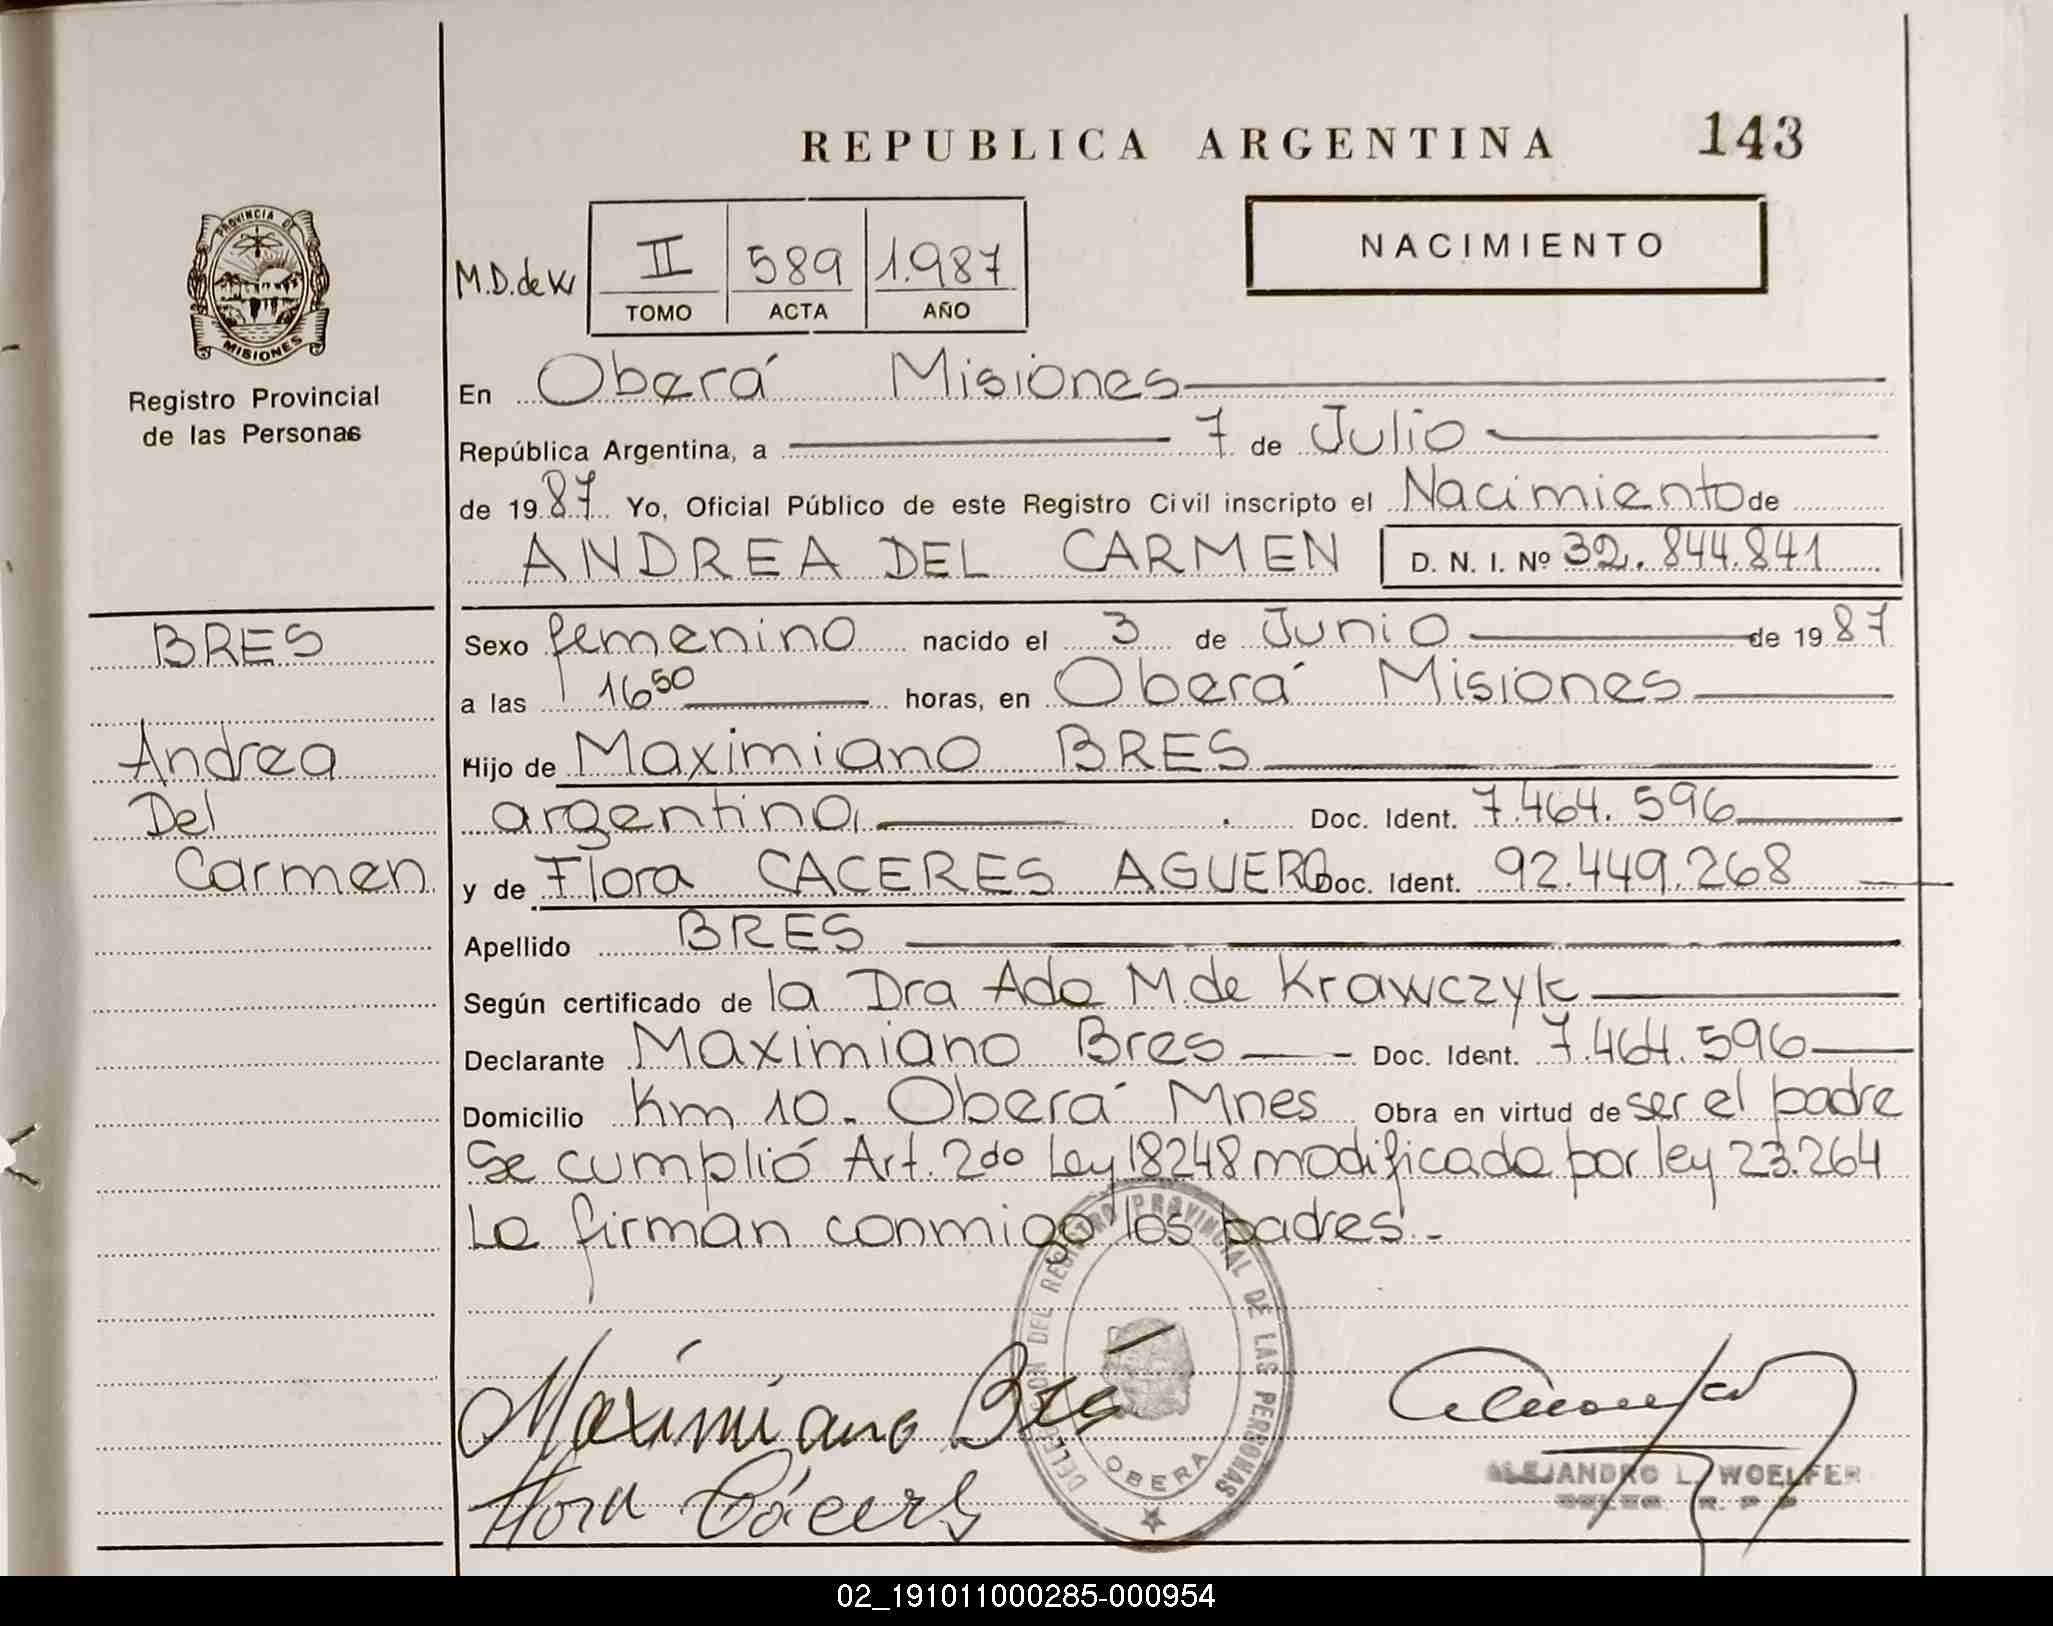 REPUBLICA ARGENTINA 143
PROVINCIA DE
MISIONES
Registro Provincial
de las Personas
M.D. de K
II 589 1.987
TOMO ACTA AÑO
NACIMIENTO
En Oberá Misiones
República Argentina, a 7 de Julio
de 1987 Yo, Oficial Público de este Registro Civil inscripto el Nacimiento de
ANDREA DEL CARMEN D. N. I. Nº 32.844.841
BRES
Andrea
Del
Carmen
Sexo femenino nacido el 3 de Junio de 1987
a las 16 50 horas, en Oberá Misiones
Hijo de Maximiano BRES
argentino, Doc. Ident. 7.464.596
y de Flora CACERES AGUERO Doc. Ident. 92.449.268
Apellido BRES
Según certificado de la Dra Ada M. de Krawczyk
Declarante Maximiano Bres Doc. Ident. 7.464.596
Domicilio Km 10. Oberá Mnes Obra en virtud de ser el padre
Se cumplió Art. 2do Ley 18248 modificada por ley 23.264
La firman conmigo los padres.-
Maximiano Brés
Flora Cáceres
DELEGACION DEL REGISTRO PROVINCIAL DE LAS PERSONAS
OBERA
ALEJANDRO L. WOELFER
02_191011000285-000954